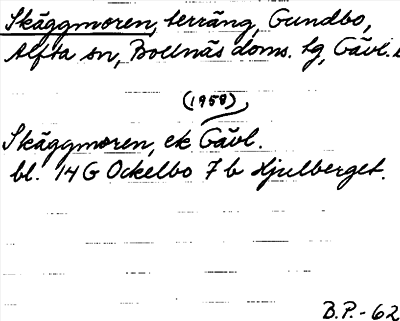 Skäggmoren, terräng, Gundbo,
Alfta sn, Bollnäs doms. tg, Gävl.
(1958)
Skäggmoren, ek Gävl.
bl. 14 G Ockelbo 7 b Hjulberget.
B.P.-62